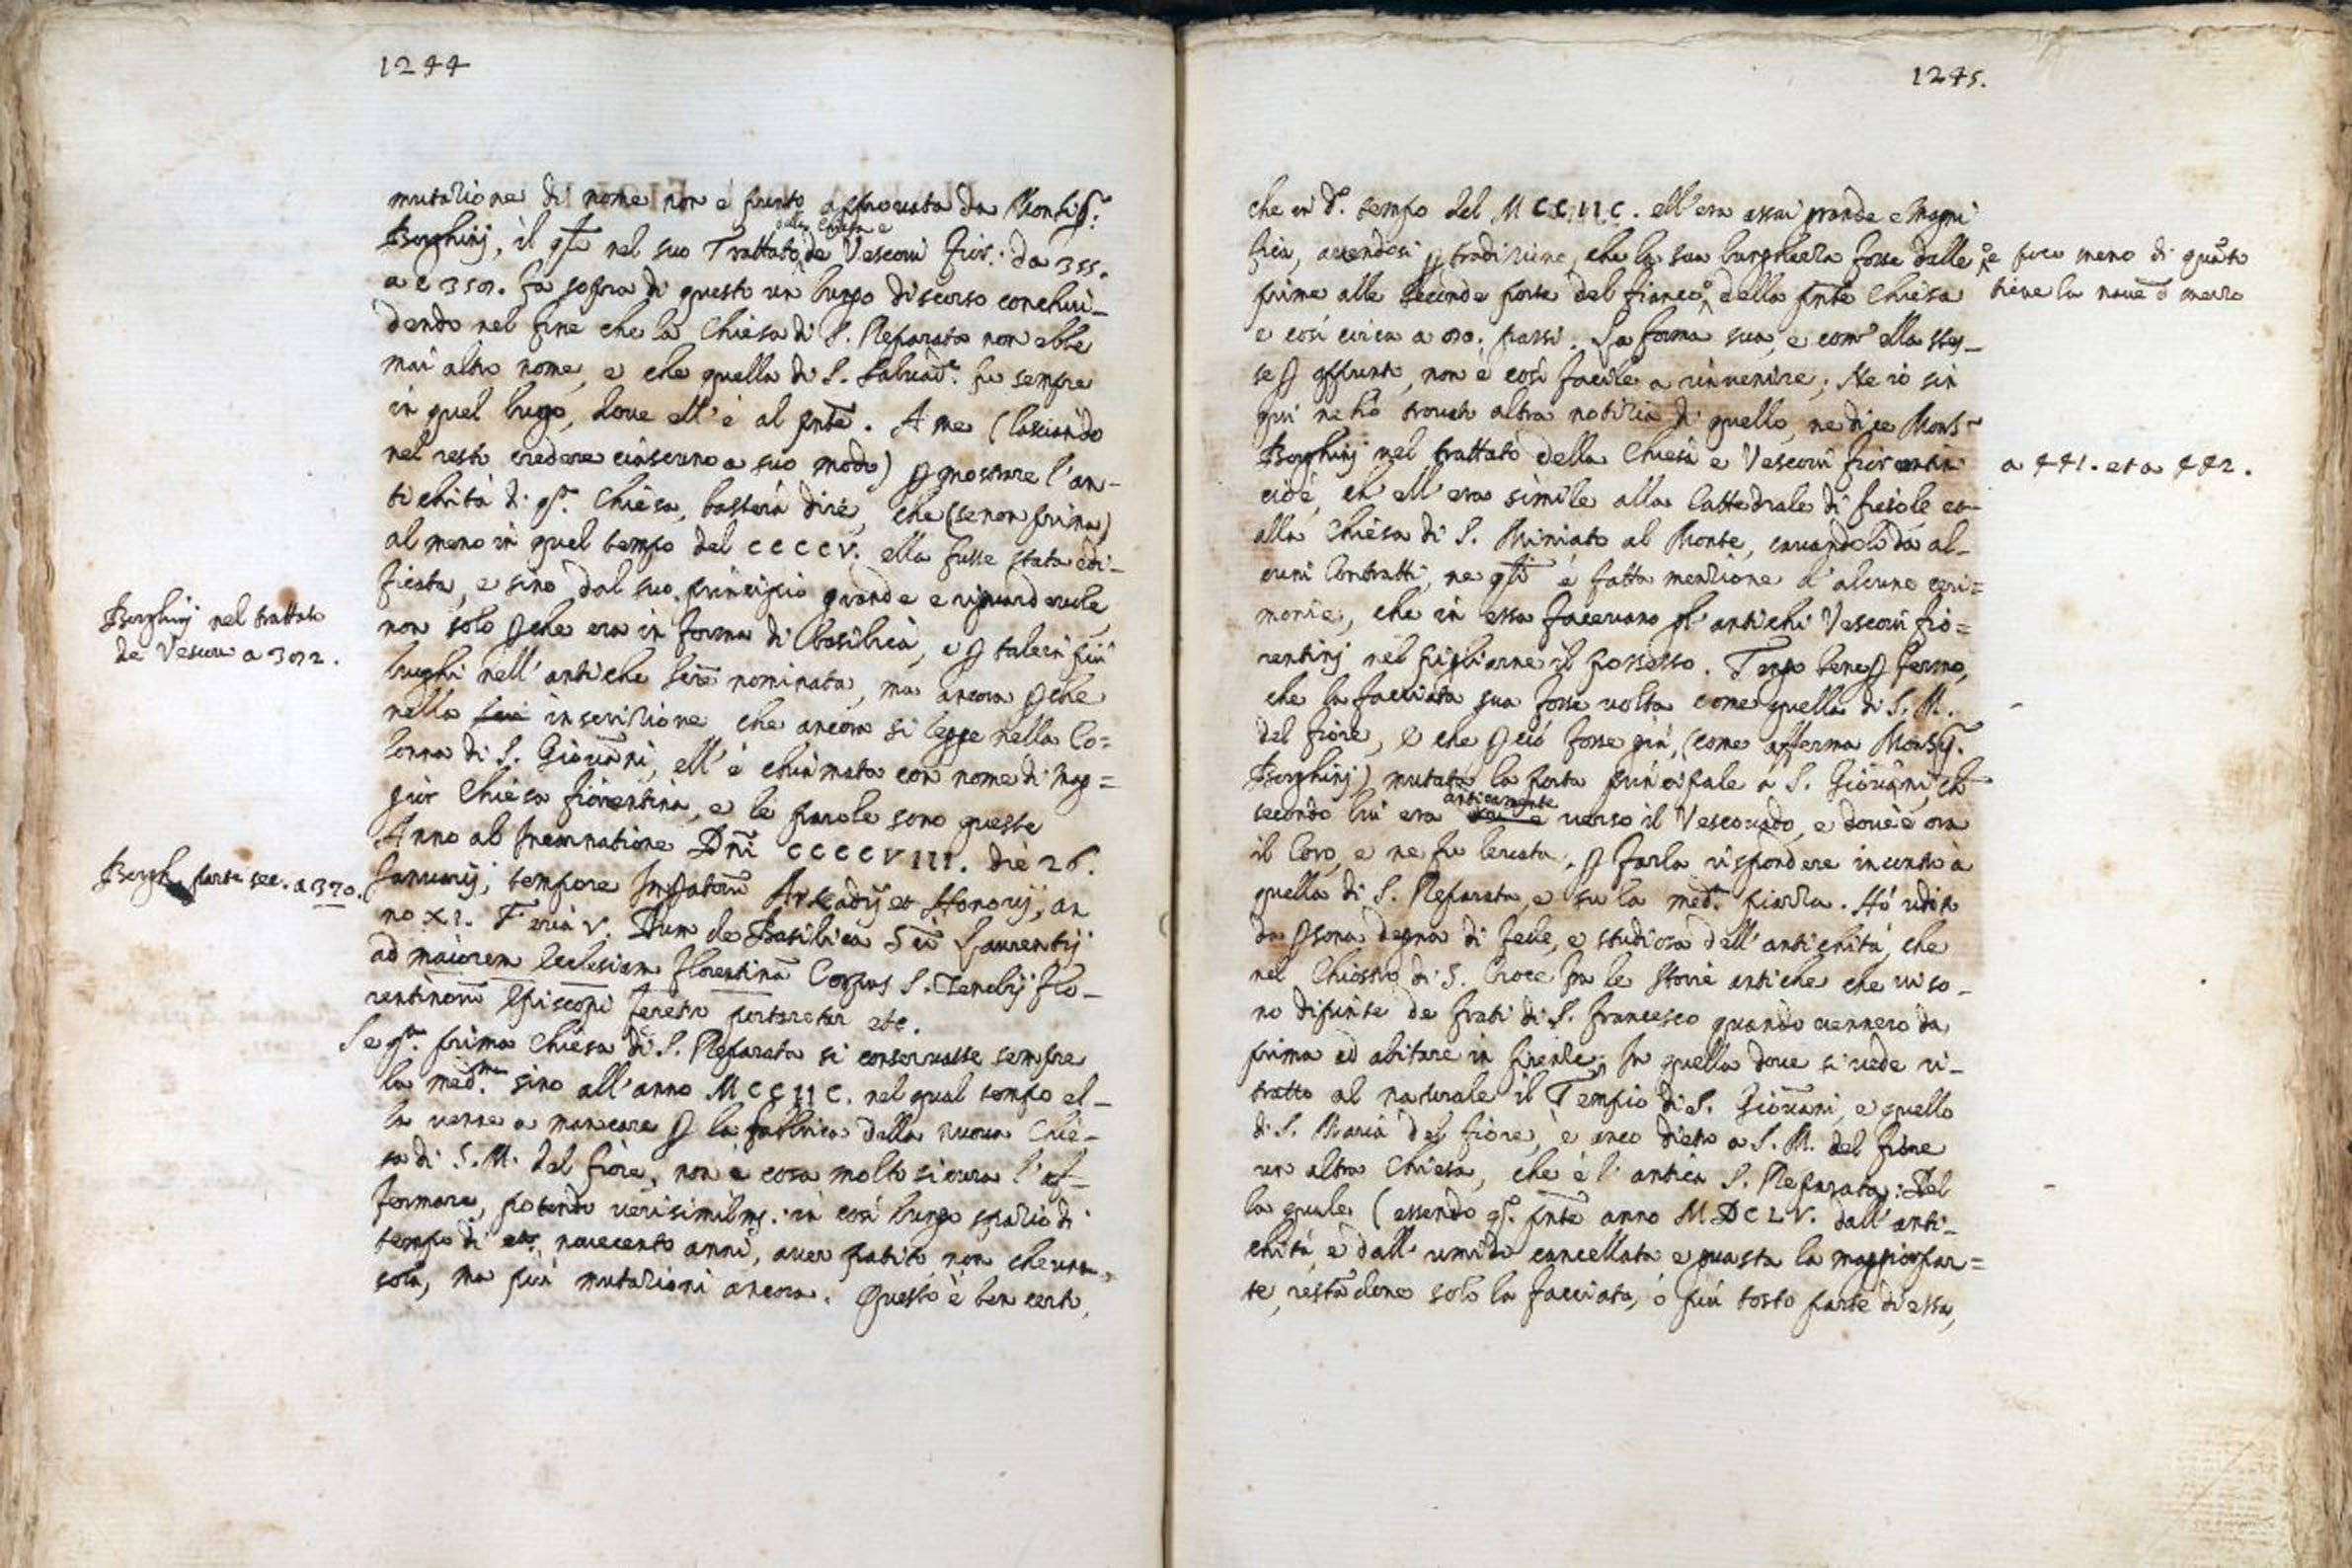 1244
mutazione di nome non è punto approvata da Monsig.r
della Chiesa e
Borghinj, il qle nel suo Trattato de Vescovi Fior. da 355.
a c 359. fa sopra di questo un lungo discorso conclui-
dendo nel fine che la Chiesa di S. Reparata non ebbe
mai altro nome, e che quella di S. Salvad.re fu sempre
in quel luogo, dove ell'è al pnte. A me (lasciando
nel resto credere ciascuno a suo modo) p mostrare l'an-
tichità di qta Chiesa, basterà dire, che (se non prima)
al meno in quel tempo del CCCCV. ella fusse stata edi-
ficata, e sino dal suo principio grande e riguardevole
non solo pche era in forma di Basilica, e p tale in più
Borghinj nel trattato
de Vescovi a 392.
luoghi nell'antiche scre nominata, ma ancora pche
nella inscrizione che ancora si legge nella Co=
lonna di S. Giovāni, ell'è chiamata con nome di Mag=
gior Chiesa fiorentina, e le parole sono queste
Anno ab Incarnatione Dñi CCCCVIII. die 26.
Borgh. parte sec. a 370.
Januarij, tempore Impatorū Arkadij et Honorij, an
no XI. Feria V. Dum de Basilica Sci Laurentij
ad maiorem Ecclesiam florentinā Corpus S. Zenobij flo-
rentinorū Episcopi feretro portaretur etc.
Se qta prima Chiesa di S. Reparata si conservasse sempre
la med.ma sino all'anno MCCIIC. nel qual tempo el-
la venne a mancare p la fabbrica della nuova Chie-
sa di S. M. del fiore, non è cosa molto sicura l'af-
fermare, potendo verisimilm. in così lungo spazio di
tempo di novecento anni, aver patito, non che una
sola, ma più mutazioni ancora. Questo è ben certo,
1245.
che in d.o tempo del MCCIIC. ell'era assai grande e Magni
fica, avendosi p tradizione, che la sua larghezza fosse dalle
e poco meno di quāto
tiene la nave d mezzo
prime alle seconde porte del fianco della pnte Chiesa
e così circa a 90. passi. La forma sua, e com'ella stes-
se p appunto, non è così facile a rinvenire; Ne io sin
qui ne hò trovato altra notizia di quello, ne dice Mons.r
Borghinj nel trattato della Chiesa e Vescovi fiorentini
a 441. et a 442.
cioè, ch'ell'era simile alla Cattedrale di fiesole et
alla Chiesa di S. Miniato al Monte, cavandolo da al-
cuni Contratti, ne qli è fatta menzione d'alcune ceri=
monie, che in essa facevano gl'antichi Vescovi fio=
rentinj nel pigliarne il possesso. Tengo bene p fermo,
che la facciata sua fosse volta come quella di S. M.
del fiore, e che p ciò fosse già, (come afferma Monsig.r
Borghinj) mutata la porta principale a S. Giovāni, ch
anticamente
secondo lui era verso il Vescovado, e dove è ora
il Coro, e ne fu levata, p farla rispondere incontro à
quella di S. Reparata, e su la med.a piazza. Hò udito
da psona degna di fede, e studiosa dell'antichità, che
nel Chiostro di S. Croce fra le storie antiche che vi so-
no dipinte de frati di S. francesco quando vennero da
prima ad abitare in firenze; In quella dove si vede ri-
tratto al naturale il Tempio di S. Giovāni, e quello
di S. Maria del fiore, è anco dietro a S. M. del fiore
un altra Chiesa, che è l'antica S. Reparata: Del
la quale (essendo qto pnte anno MDCLV. dall'anti-
chità, e dall'umido cancellata e guasta la maggior par=
te, restādone solo la facciata, ò più tosto parte di essa,